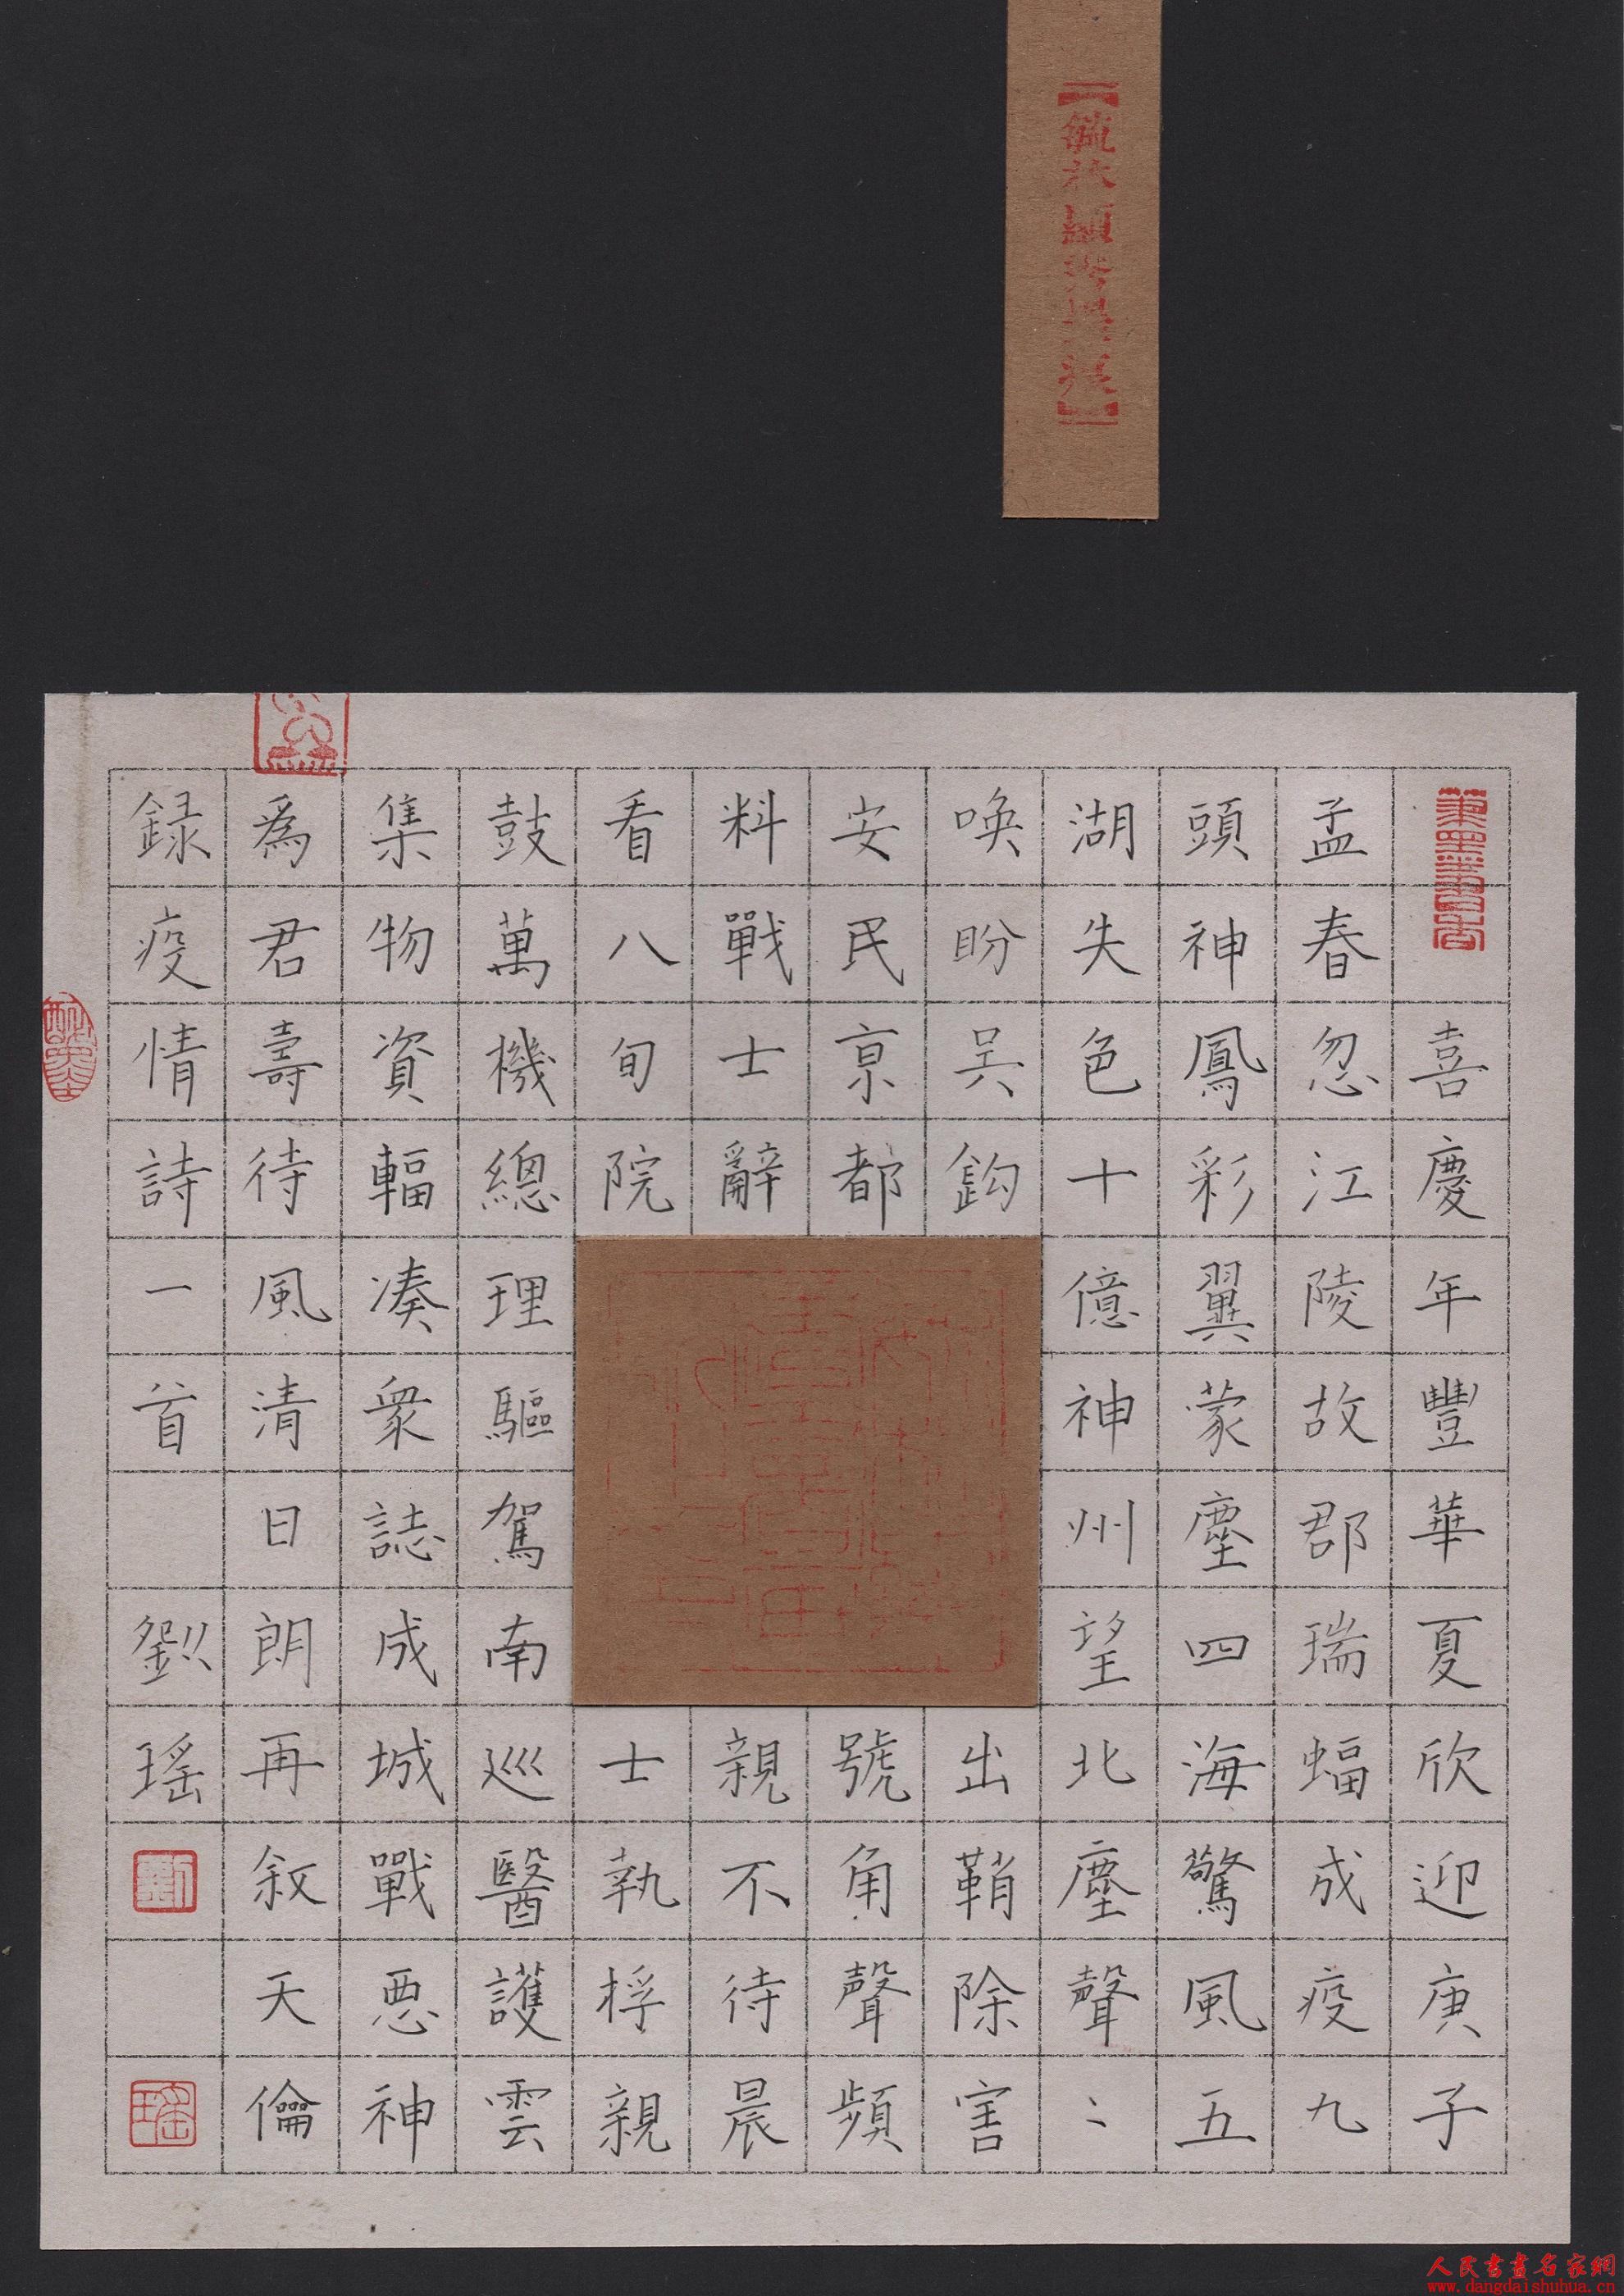 喜慶年豐華夏欣迎庚子
孟春忽江陵故郡瑞蝠成疫九
頭神鳳彩翼蒙塵四海驚風五
湖失色十億神州望北塵聲〻
喚盼吴鈎出鞘除害
安民京都號角聲頻
料戰士辭親不待晨
看八旬院士執桴親
鼓萬機總理驅駕南巡醫護雲
集物資輻凑衆誌成城戰惡神
爲君壽待風清日朗再敘天倫
録疫情詩一首 劉瑶
劉
瑶
人民書畫名家網
www.dangdaishuhua.cn